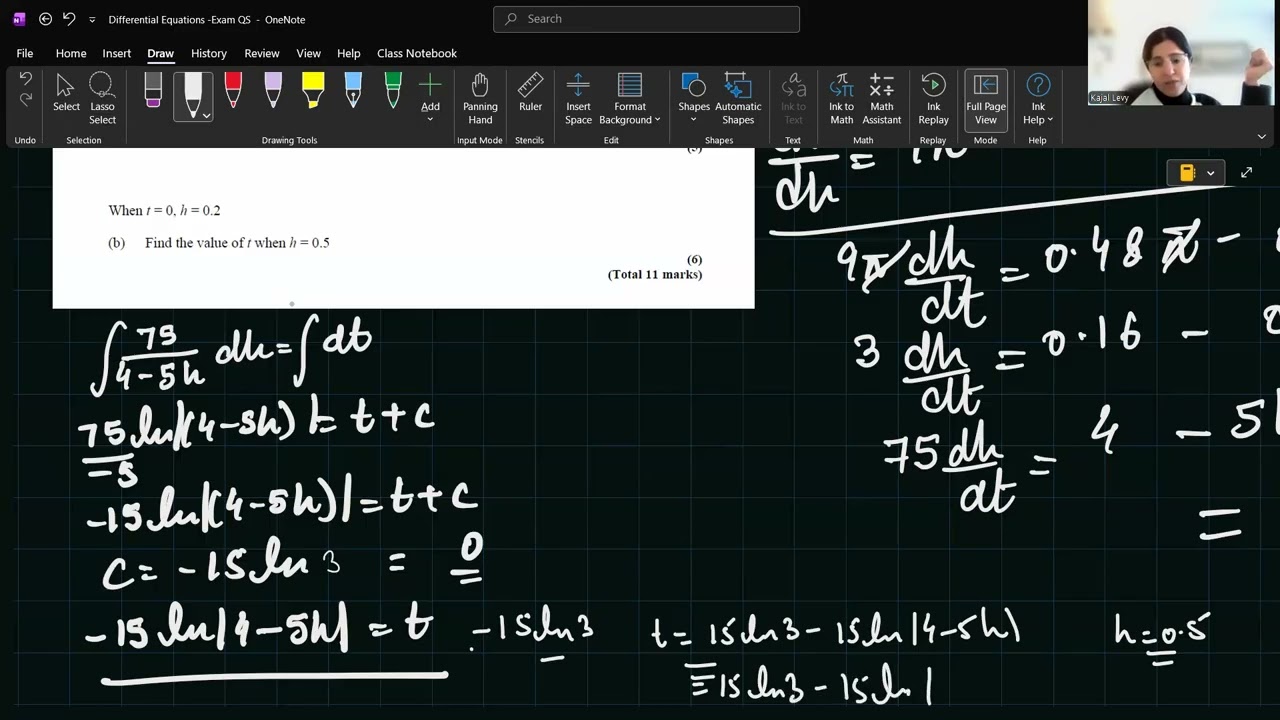 Differential Equations -Exam QS - OneNote
Search
File Home Insert Draw History Review View Help Class Notebook
Select Lasso Select Add Panning Hand Ruler Insert Space Format Background Shapes Automatic Shapes Ink to Text Ink to Math Math Assistant Ink Replay Full Page View Ink Help
Undo Selection Drawing Tools Input Mode Stencils Edit Shapes Text Math Replay Mode Help
Kajal Levy
When t = 0, h = 0.2
(b) Find the value of t when h = 0.5
(6)
(Total 11 marks)
∫ 75/(4-5h) dh = ∫ dt
75/-5 ln|(4-5h)| = t + c
-15 ln|(4-5h)| = t + c
c = -15 ln 3 = 0
-15 ln|4-5h| = t - 15 ln 3
t = 15 ln 3 - 15 ln|4-5h|
= 15 ln 3 - 15 ln |
h = 0.5
dh =
9π dh/dt = 0.48π -
3 dh/dt = 0.16 -
75 dh/dt = 4 - 5h
=